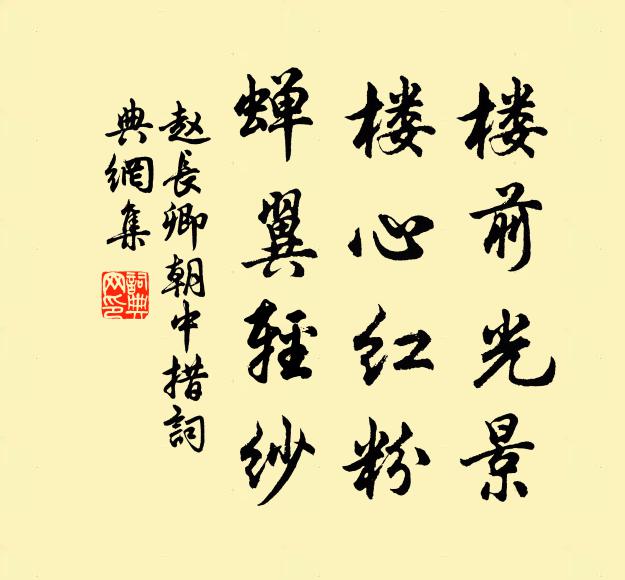 楼前光景
楼心红粉
蝉翼輕纱
赵長卿朝中措詞
典網集
詞典
网印